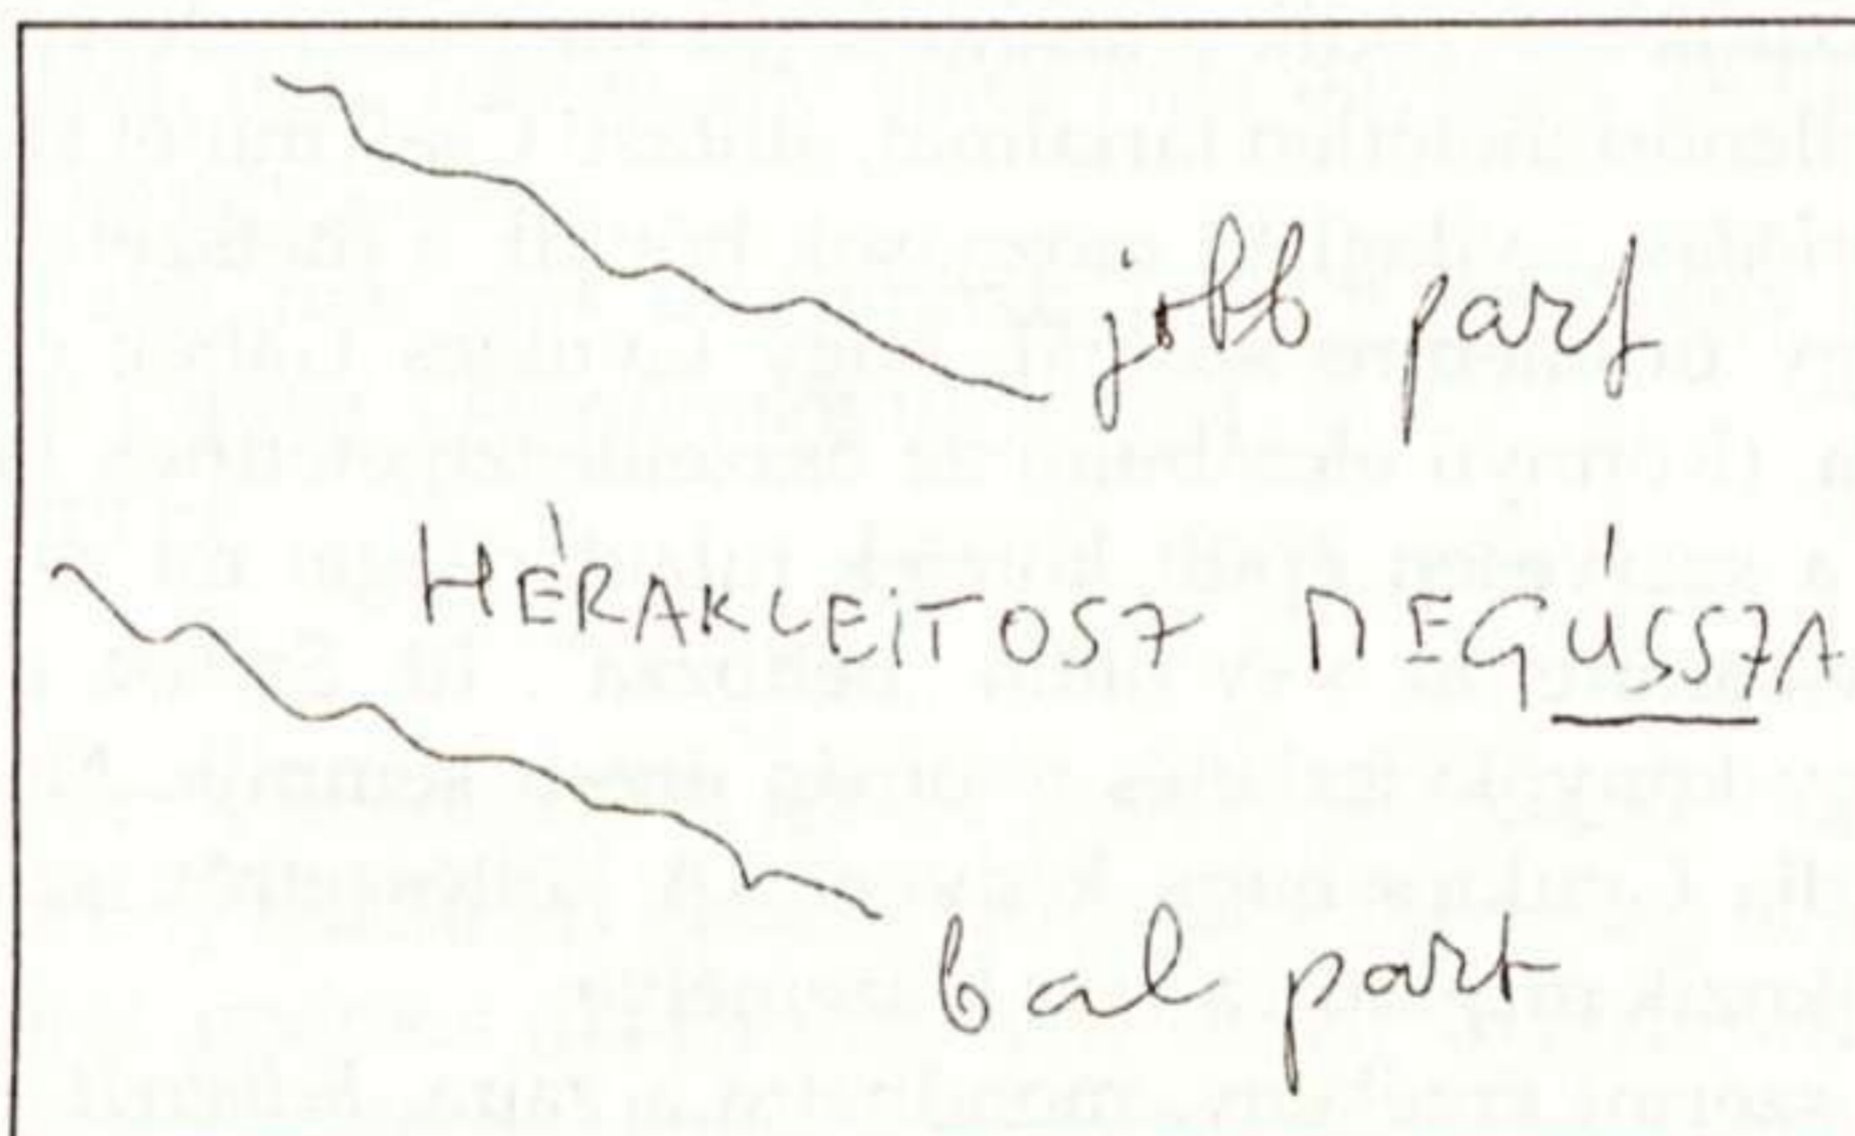 jobb part
HÉRAKLEiTOSZ MEGÚSSZA
bal part